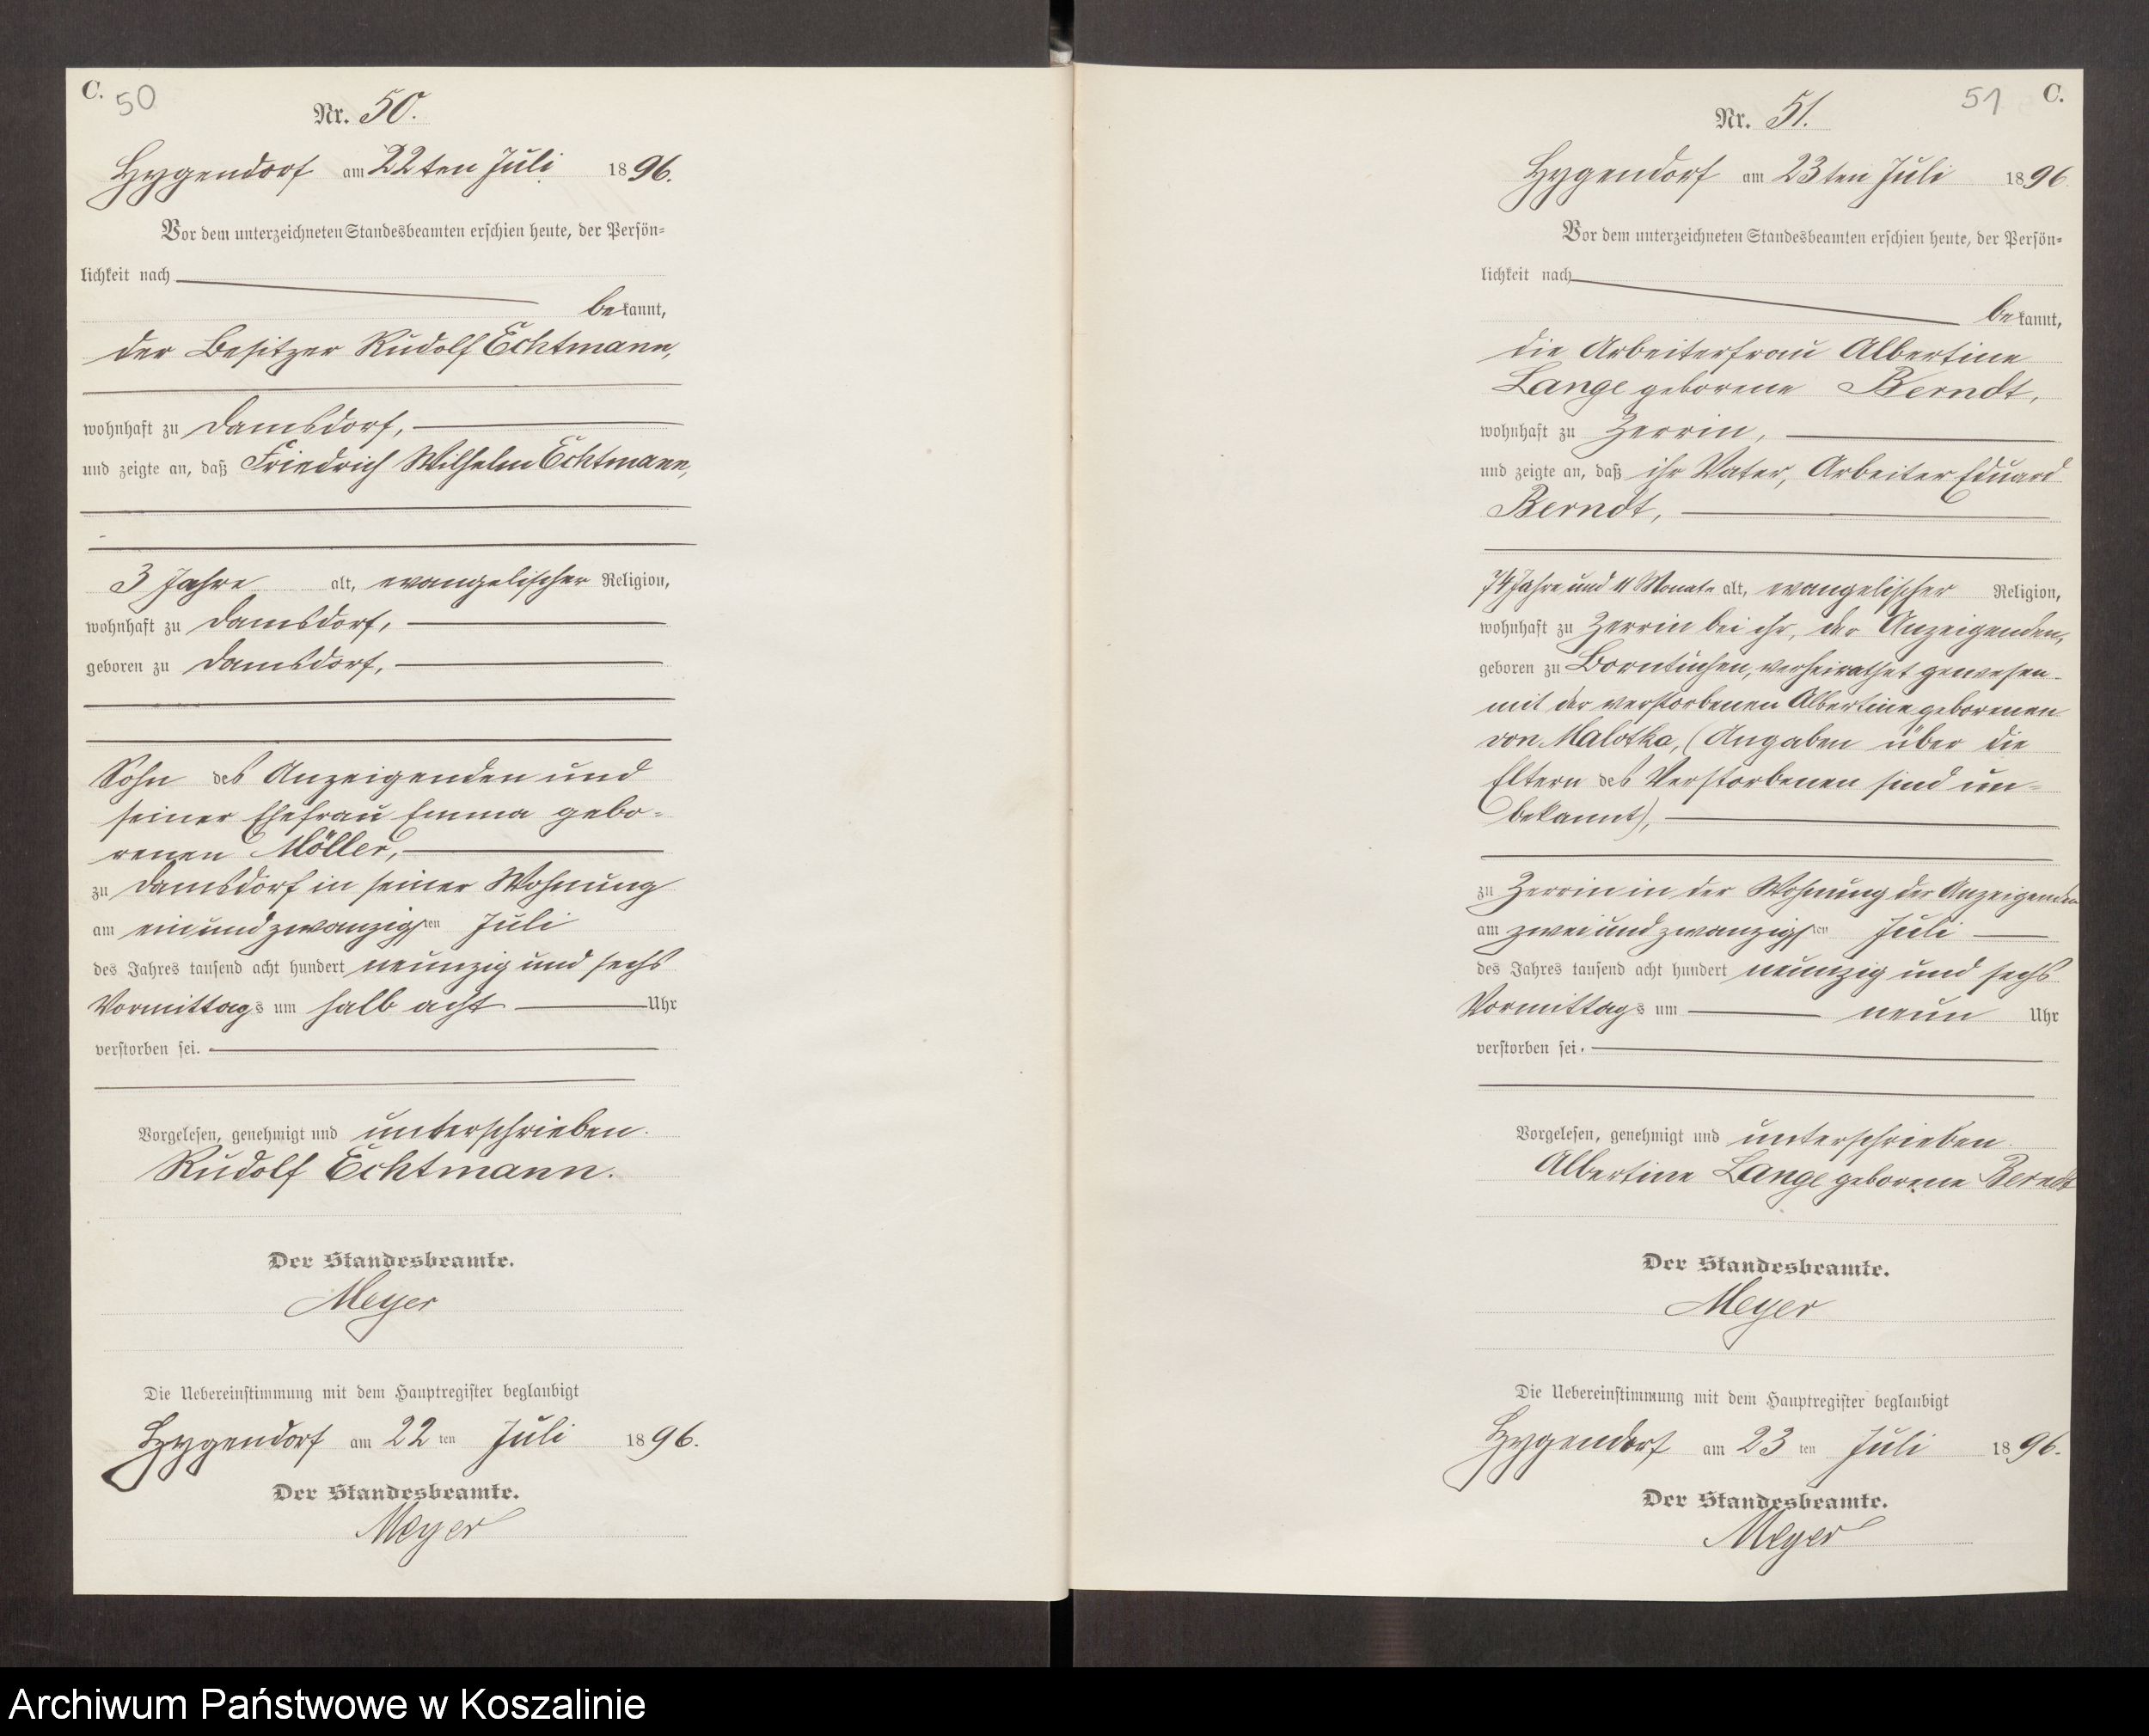 C. 50
Nr. 50.
Hygendorf am 22ten Juli 1896.
Vor dem unterzeichneten Standesbeamten erschien heute, der Persön-
lichkeit nach
bekannt,
der Besitzer Rudolf Echtmann,
wohnhaft zu Damsdorf,
und zeigte an, daß Friedrich Wilhelm Echtmann,
3 Jahre alt, evangelischer Religion,
wohnhaft zu Damsdorf,
geboren zu Damsdorf,
Sohn des Anzeigenden und
seiner Ehefrau Emma gebo-
renen Möller,
zu Damsdorf in seiner Wohnung
am einundzwanzigsten Juli
des Jahres tausend acht hundert neunzig und sechs
Vormittags um halb acht Uhr
verstorben sei.
Vorgelesen, genehmigt und unterschrieben.
Rudolf Echtmann.
Der Standesbeamte.
Meyer
Die Uebereinstimmung mit dem Hauptregister beglaubigt
Hygendorf am 22 ten Juli 1896.
Der Standesbeamte.
Meyer
51 C.
Nr. 51.
Hygendorf am 23ten Juli 1896
Vor dem unterzeichneten Standesbeamten erschien heute, der Persön-
lichkeit nach
bekannt,
die Arbeiterfrau Albertine
Lange geborene Berndt,
wohnhaft zu Zerrin,
und zeigte an, daß ihr Vater, Arbeiter Eduard
Berndt,
74 Jahre und 11 Monate alt, evangelischer Religion,
wohnhaft zu Zerrin bei ihr, der Anzeigenden,
geboren zu Borntuchen, verheirathet gewesen
mit der verstorbenen Albertine geborenen
von Malotka, (Angaben über die
Eltern des Verstorbenen sind un-
bekannt),
zu Zerrin in der Wohnung der Anzeigenden
am zweiundzwanzigsten Juli
des Jahres tausend acht hundert neunzig und sechs
Vormittags um neun Uhr
verstorben sei.
Vorgelesen, genehmigt und unterschrieben.
Albertine Lange geborene Berndt
Der Standesbeamte.
Meyer
Die Uebereinstimmung mit dem Hauptregister beglaubigt
Hygendorf am 23 ten Juli 1896.
Der Standesbeamte.
Meyer
Archiwum Państwowe w Koszalinie